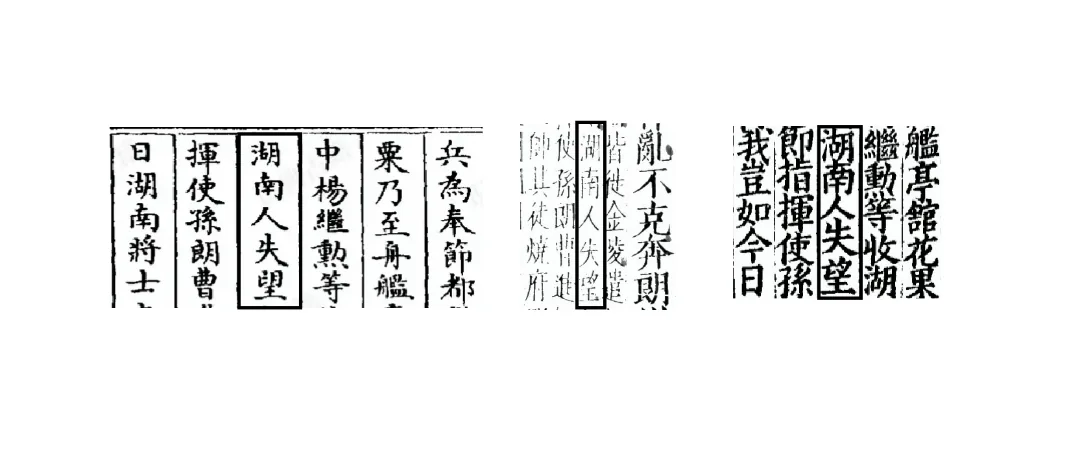 兵為奉節都
粟乃至舟艦
中楊繼勲等
湖南人失望
揮使孫朗曹
日湖南將士
亂不克奔朗
皆徙金陵遣
湖南人失望
使孫朗曹進
帥其徒燒府
艦亭館花果
繼勲等收湖
湖南人失望
即指揮使孫
我豈如今日